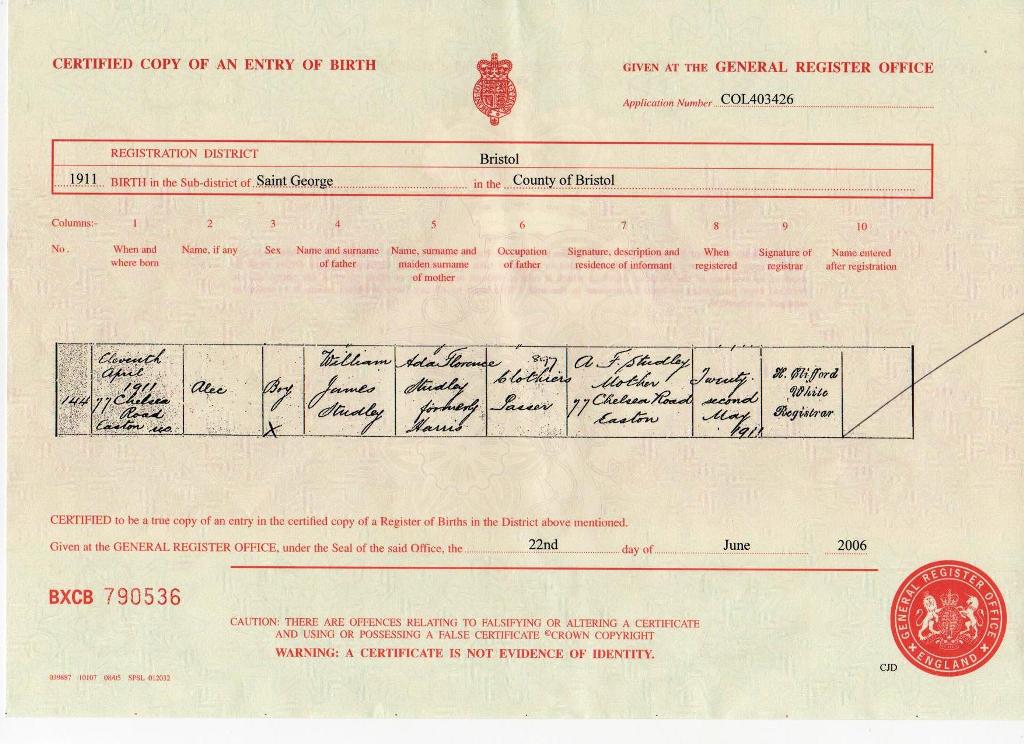 CERTIFIED COPY OF AN ENTRY OF BIRTH
GIVEN AT THE GENERAL REGISTER OFFICE
Application Number COL403426
REGISTRATION DISTRICT Bristol
1911 BIRTH in the Sub-district of Saint George in the County of Bristol
Columns:- 1 2 3 4 5 6 7 8 9 10
No. When and where born Name, if any Sex Name and surname of father Name, surname and maiden surname of mother Occupation of father Signature, description and residence of informant When registered Signature of registrar Name entered after registration
144
Eleventh
April
1911
77 Chelsea
Road
Easton
Alec
Boy
X
William
James
Studley
Ada Florence
Studley
formerly
Harris
897
Clothiers
Passer
A. F. Studley
Mother
77 Chelsea Road
Easton
Twenty
second
May
1911
White
Registrar
CERTIFIED to be a true copy of an entry in the certified copy of a Register of Births in the District above mentioned.
Given at the GENERAL REGISTER OFFICE, under the Seal of the said Office, the 22nd day of June 2006
BXCB 790536
CAUTION: THERE ARE OFFENCES RELATING TO FALSIFYING OR ALTERING A CERTIFICATE
AND USING OR POSSESSING A FALSE CERTIFICATE ©CROWN COPYRIGHT
WARNING: A CERTIFICATE IS NOT EVIDENCE OF IDENTITY.
GENERAL REGISTER OFFICE
ENGLAND
CJD
039887 10107 08/05 SPSL 012032